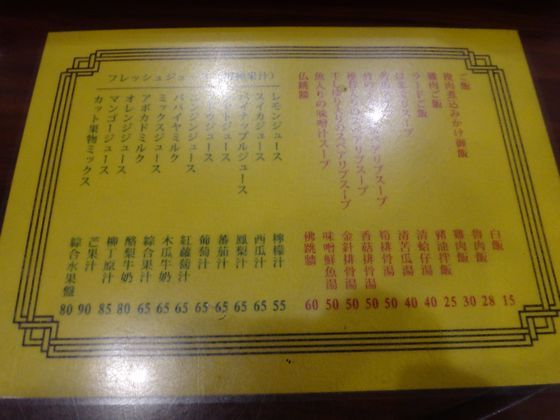 ご飯
挽肉煮込みかけ御飯
雞肉ご飯
ラードご飯
はまぐりスープ
スペアリブスープ
魚入りの味噌汁スープ
仏跳牆
白飯 15
魯肉飯 28
雞肉飯 30
豬油拌飯 25
清蛤仔湯 40
清苦瓜湯 40
筍排骨湯 50
香菇排骨湯 50
金針排骨湯 50
味噌鮮魚湯 50
佛跳牆 60
フレッシュジュース
レモンジュース
スイカジュース
パイナップルジュース
トマトジュース
ニンジンジュース
パパイヤミルク
ミックスジュース
アボカドミルク
オレンジジュース
マンゴージュース
カット果物ミックス
檸檬汁 55
西瓜汁 65
鳳梨汁 65
蕃茄汁 65
葡萄汁 65
紅蘿蔔汁 65
木瓜牛奶 65
綜合果汁 65
酪梨牛奶 80
柳丁原汁 85
芒果汁 90
綜合水果盤 80